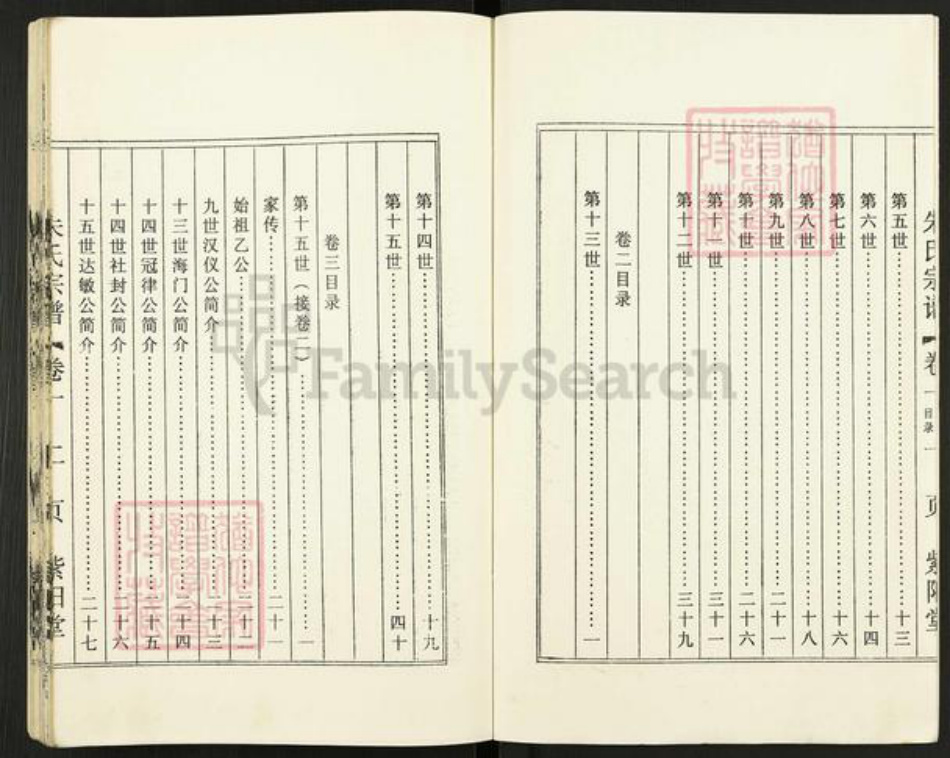 朱氏宗谱 卷一 目录 一页 紫阳堂
第五世……十三
第六世……十四
第七世……十六
第八世……十八
第九世……二十一
第十世……二十六
第十一世……三十一
第十二世……三十九
卷二目录
第十三世……一
第十四世……十九
第十五世……四十
卷三目录
第十五世（接卷二）……一
家传……二十一
始祖乙公……二十二
九世汉仪公简介……二十三
十三世海门公简介……二十四
十四世冠律公简介……二十五
十四世社封公简介……二十六
十五世达敏公简介……二十七
朱氏宗谱 卷一 页 紫阳堂
FamilySearch